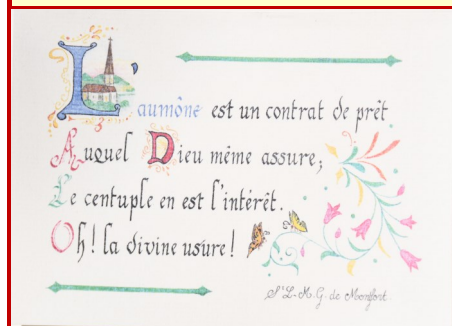 L'aumône est un contrat de prêt
Auquel Dieu même assure,
Le centuple en est l'intérêt.
Oh! la divine usure!
St L-M. G. de Montfort